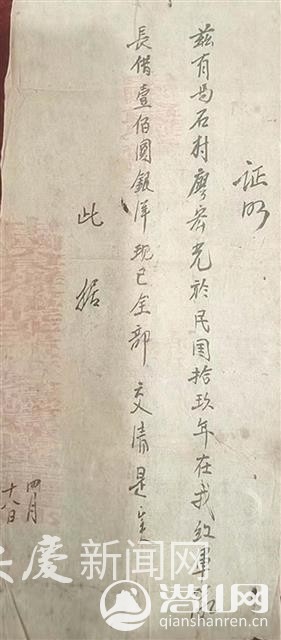 证明
兹有马石村廖宏光於民国拾玖年在我红军
長借壹佰圆银洋现已全部交清是实
此据
四月
十八日
安庆新闻网
潜山网
qianshanren.cn